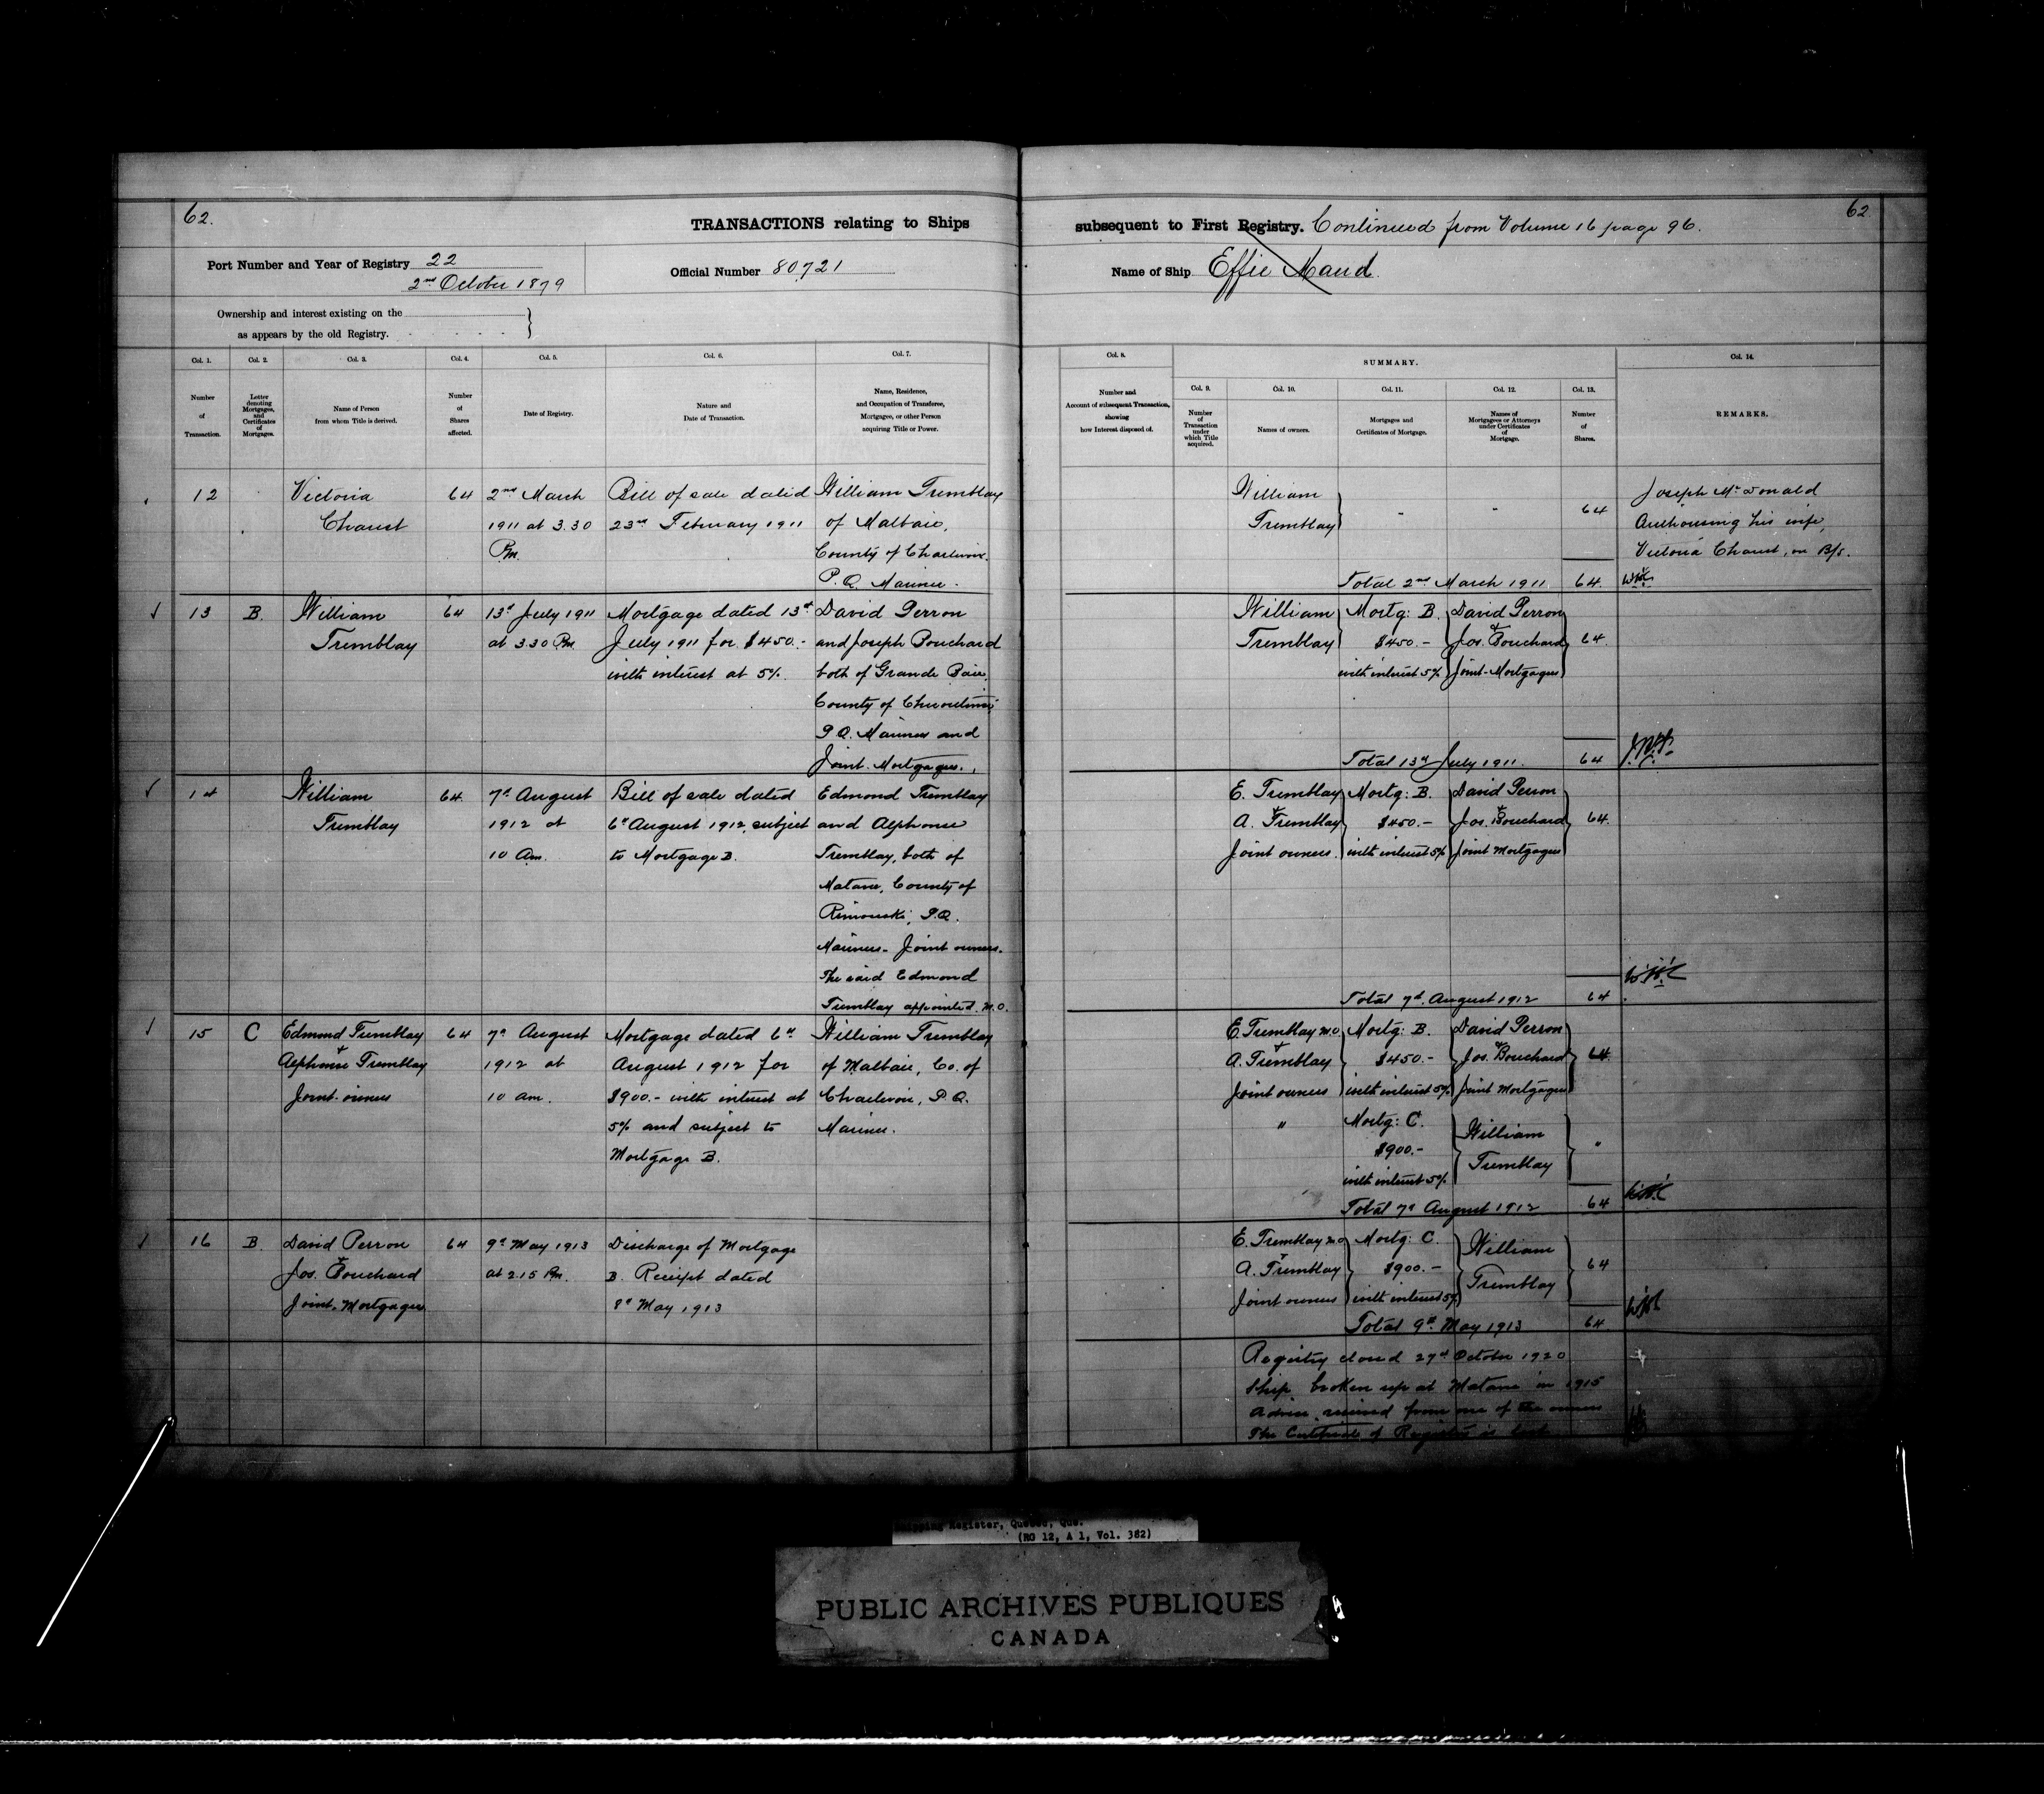 62.
TRANSACTIONS relating to Ships
subsequent to First Registry. Continued from Volume 16 page 96.
62
Port Number and Year of Registry 22
2nd October 1879
Official Number 80,721
Name of Ship Effie Maud.
Ownership and interest existing on the
as appears by the old Registry.
Col. 1.
Number
of
Transaction.
Col. 2.
Letter
denoting
Mortgages,
and
Certificates
of
Mortgages.
Col. 3.
Name of Person
from whom Title is derived.
Col. 4.
Number
of
Shares
affected.
Col. 5.
Date of Registry.
Col. 6.
Nature and
Date of Transaction.
Col. 7.
Name, Residence,
and Occupation of Transferee,
Mortgagee, or other Person
acquiring Title or Power.
Col. 8.
Number and
Account of subsequent Transaction,
showing
how Interest disposed of.
SUMMARY.
Col. 9.
Number
of
Transaction
under
which Title
acquired.
Col. 10.
Names of owners.
Col. 11.
Mortgages and
Certificates of Mortgage.
Col. 12.
Names of
Mortgagees or Attorneys
under Certificates
of
Mortgage.
Col. 13.
Number
of
Shares.
Col. 14.
REMARKS.
12
Victoria
Chaust
64
2nd March
1911 at 3.30
Pm.
Bill of sale dated
23rd February 1911
William Tremblay
of Malbaie,
County of Charlevoix
P.Q. Mariner.
William
Tremblay
64
Total 2nd March 1911
64.
Joseph McDonald
Authorising his wife,
Victoria Chaust, on B/s.
13
B.
William
Tremblay
64
13th July 1911
at 3.30 Pm
Mortgage dated 13th
July 1911 for $450.-
with interest at 5%.
David Perron
and Joseph Bouchard
both of Grande Baie,
County of Chicoutimi
P.Q. Mariners and
Joint-Mortgagees.
William
Tremblay
Mortg: B.
$450.-
with interest 5%
David Perron
&
Jos. Bouchard
Joint-Mortgagees
64.
Total 13th July 1911.
64
14
William
Tremblay
64.
7th August
1912 at
10 Am.
Bill of sale dated
6th August 1912, subject
to Mortgage B.
Edmond Tremblay
and Alphonse
Tremblay, both of
Matane, County of
Rimouski, P.Q.
Mariners - Joint owners.
The said Edmond
Tremblay appointed M.O.
E. Tremblay
&
A. Tremblay
Joint owners.
Mortg: B.
$450.-
with interest 5%
David Perron
&
Jos. Bouchard
Joint Mortgagees
64.
Total 7th August 1912
64.
15
C
Edmond Tremblay
&
Alphonse Tremblay
Joint-owners
64
7th August
1912 at
10 am.
Mortgage dated 6th
August 1912 for
$900.- with interest at
5% and subject to
Mortgage B.
William Tremblay
of Malbaie, Co. of
Charlevoix, P.Q.
Mariner.
E. Tremblay M.O
&
A. Tremblay
Joint owners
Mortg: B.
$450.-
with interest 5%
David Perron
&
Jos. Bouchard
Joint Mortgagees
64.
"
Mortg: C.
$900.-
with interest 5%
William
Tremblay
"
Total 7th August 1912
64
16
B.
David Perron
&
Jos. Bouchard
Joint-Mortgagees
64
9th May 1913
at 2.15 Pm.
Discharge of Mortgage
B. Receipt dated
8th May 1913
E. Tremblay M.O
&
A. Tremblay
Joint owners
Mortg: C.
$900.-
with interest 5%
William
Tremblay
64
Total 9th May 1913
64
Registry closed 27th October 1920
Ship broken up at Matane in 1915
Advice received from one of the owners
The Certificate of Registry is lost
Shipping Register, Quebec, Que.
(RG 12, A 1, Vol. 382)
PUBLIC ARCHIVES PUBLIQUES
CANADA